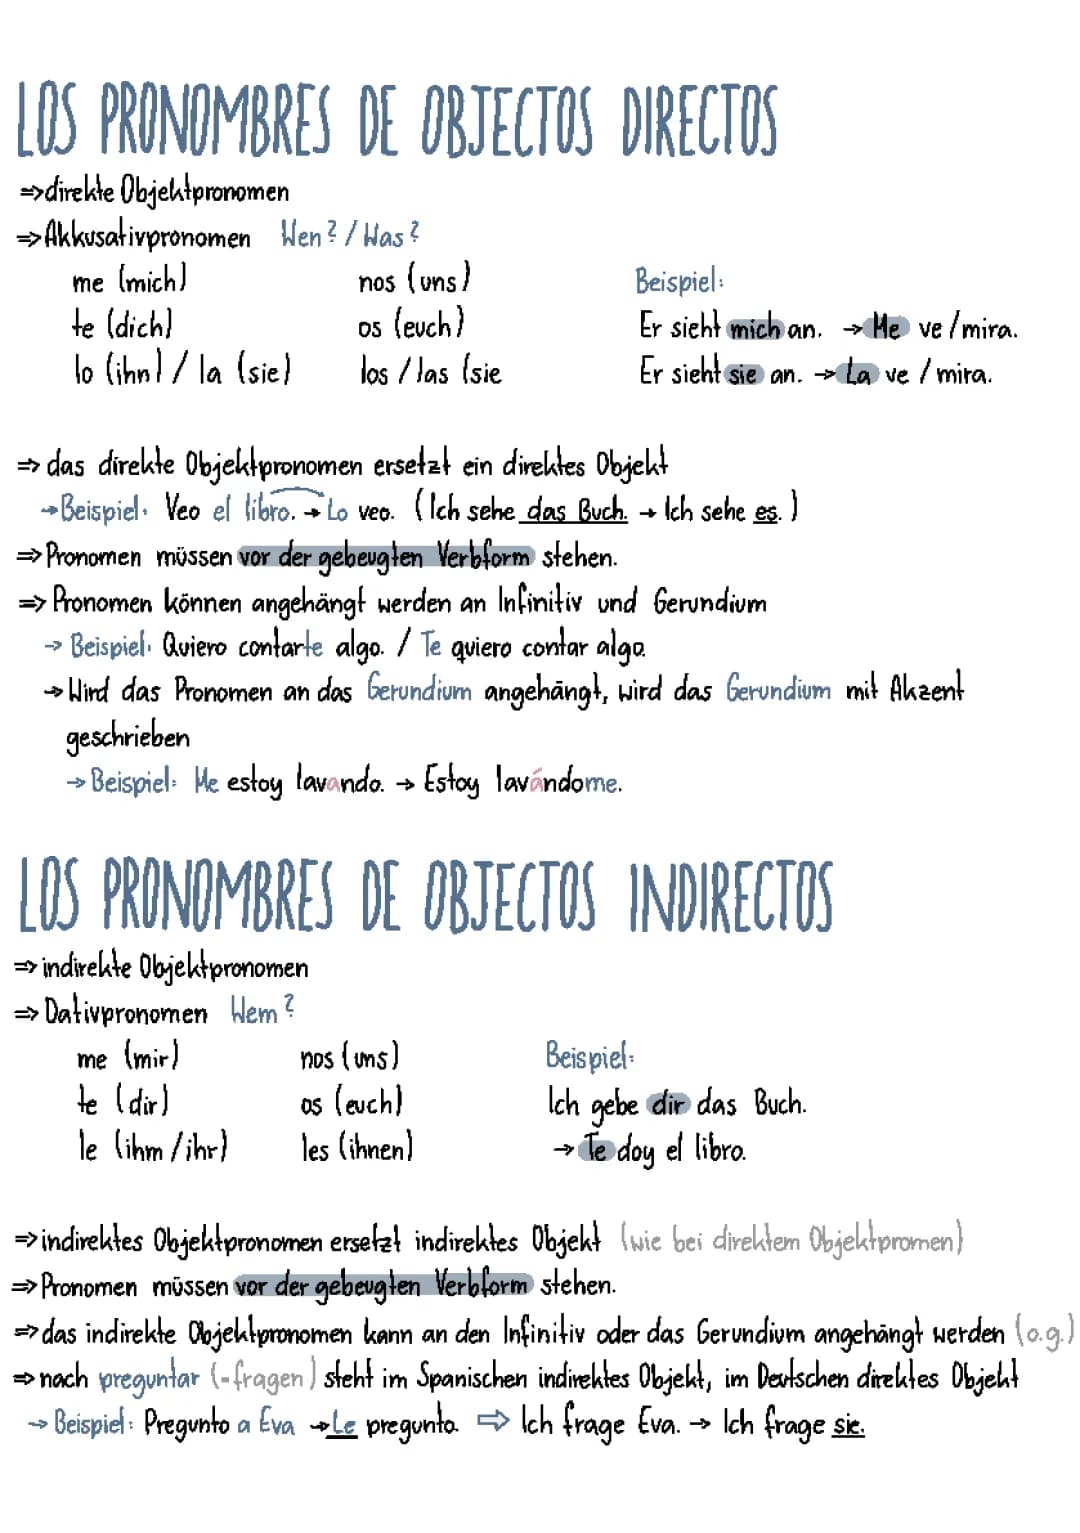 LOS PRONOMBRES DE OBJECTOS DIRECTOS
⇒direkte Objektpronomen
⇒Akkusativpronomen Wen? / Was?
me (mich) nos (uns) Beispiel:
te (dich) os (euch) Er sieht mich an. → Me ve/mira.
lo (ihn) / la (sie) los / las (sie Er sieht sie an. → La ve / mira.
⇒ das direkte Objektpronomen ersetzt ein direktes Objekt
→Beispiel: Veo el libro. → Lo veo. (Ich sehe das Buch. → Ich sehe es.)
⇒Pronomen müssen vor der gebeugten Verbform stehen.
⇒ Pronomen können angehängt werden an Infinitiv und Gerundium
→ Beispiel: Quiero contarte algo. / Te quiero contar algo.
→ Wird das Pronomen an das Gerundium angehängt, wird das Gerundium mit Akzent
geschrieben
→ Beispiel: Me estoy lavando. → Estoy lavándome.
LOS PRONOMBRES DE OBJECTOS INDIRECTOS
⇒ indirekte Objektpronomen
⇒ Dativpronomen Wem?
me (mir) nos (uns) Beispiel:
te (dir) os (euch) Ich gebe dir das Buch.
le (ihm/ihr) les (ihnen) → Te doy el libro.
⇒indirektes Objektpronomen ersetzt indirektes Objekt (wie bei direktem Objektpromen)
⇒ Pronomen müssen vor der gebeugten Verbform stehen.
⇒das indirekte Objektpronomen kann an den Infinitiv oder das Gerundium angehängt werden (o.g.)
⇒ nach preguntar (=fragen) steht im Spanischen indirektes Objekt, im Deutschen direktes Objekt
→ Beispiel: Pregunto a Eva → Le pregunto. ⇨ Ich frage Eva. → Ich frage sie.